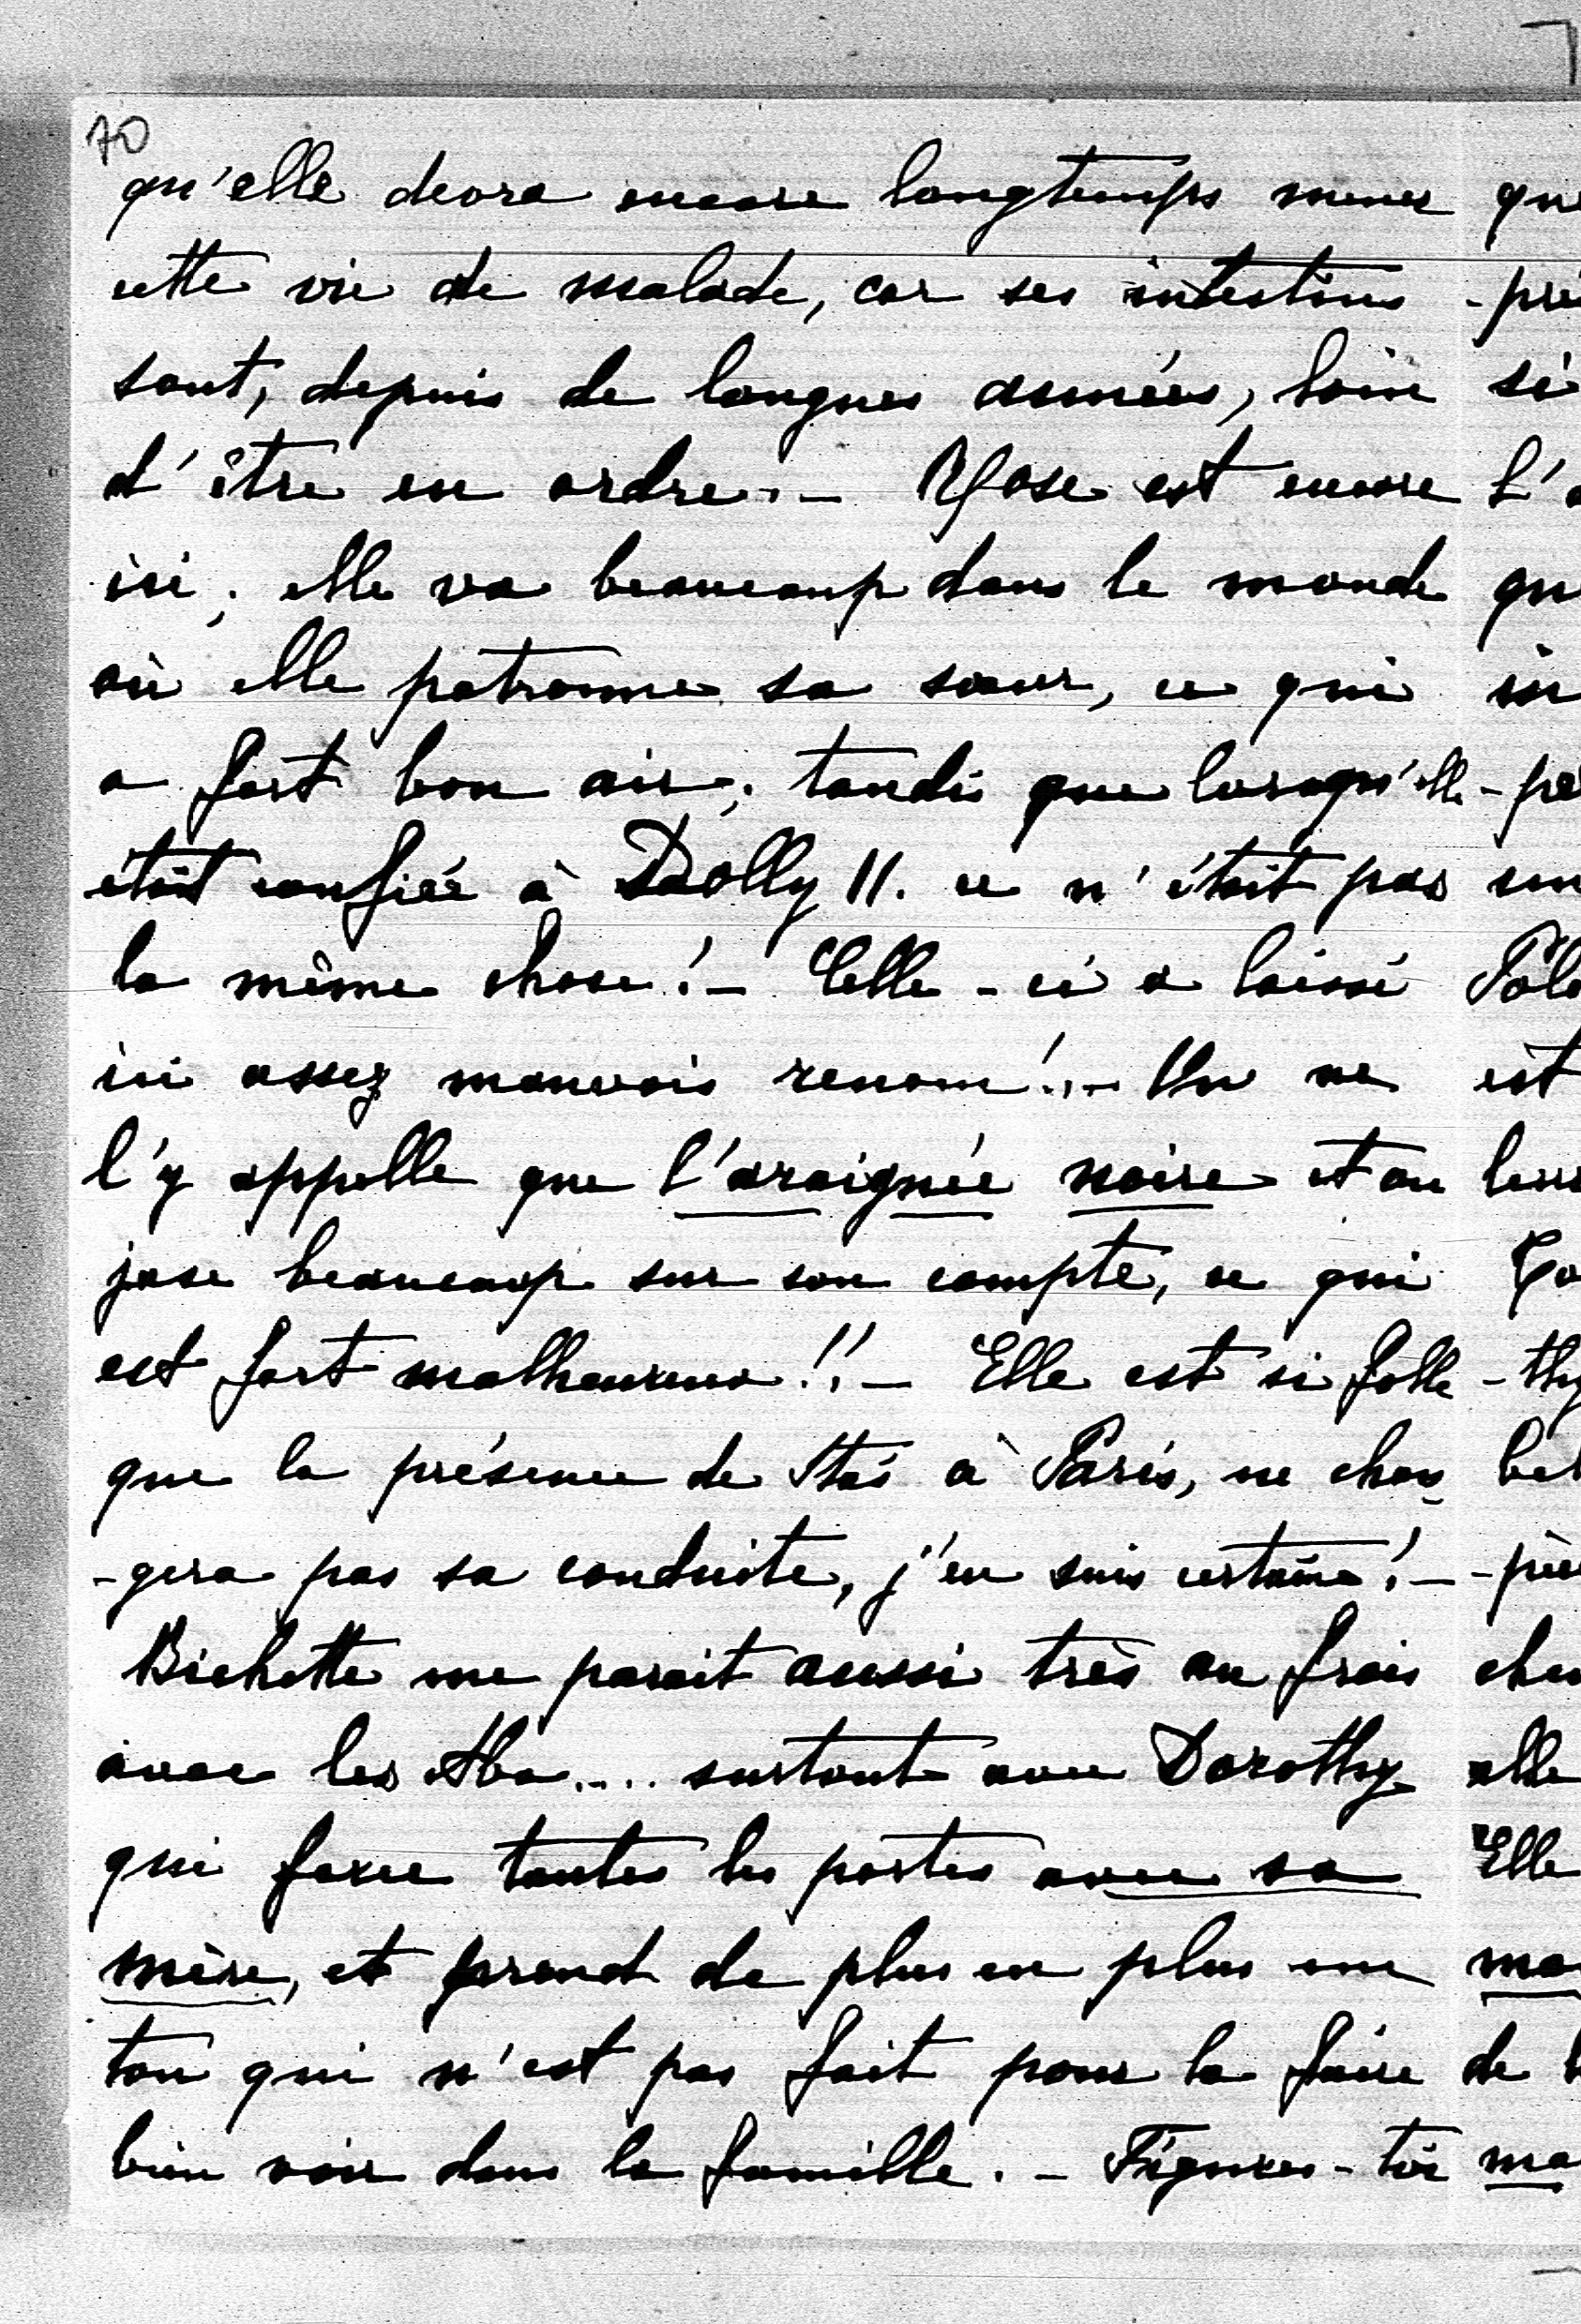 70
qu'elle devra encore longtemps mener
cette vie de malade, car ses intestins
sont, depuis de longues années, loin
d'être en ordre. — Rose est encore
ici; elle va beaucoup dans le monde
où elle patronne sa sœur, ce qui
a fort bon air; tandis que lorsqu'elle
était confiée à Dolly II. ce n'était pas
la même chose! — Celle-ci a laissé
ici assez mauvais renom!... On ne
l'y appelle que l'araignée noire et on
jase beaucoup sur son compte, ce qui
est fort malheureux!! — Elle est si folle
que la présence de Stás à Paris, ne chan
-gera pas sa conduite, j'en suis certaine! —
Bichette me parait aussi très au frais
avec les Aba.... surtout avec Dorothy
qui force toutes les portes avec sa
mère, et prend de plus en plus un
ton qui n'est pas fait pour la faire
bien voir dans la famille. — Figures-toi